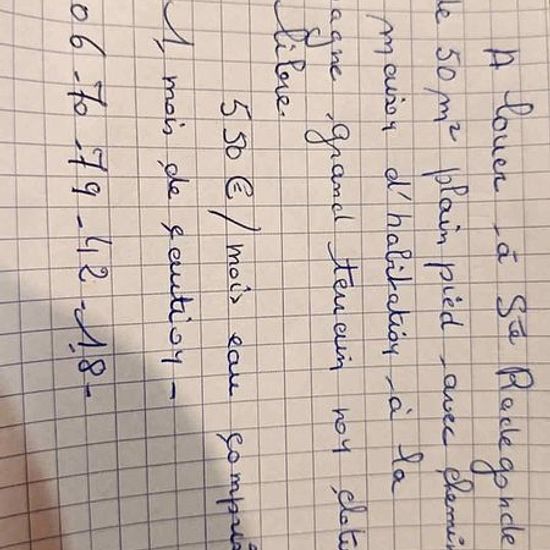 A louer à Ste Radegonde
de 50 m² plain pied avec chemi
maison d'habitation à la
agne grand terrain non clotu
libre.
550€/mois eau compris
1 mois de caution -
06-70-79-42-18-